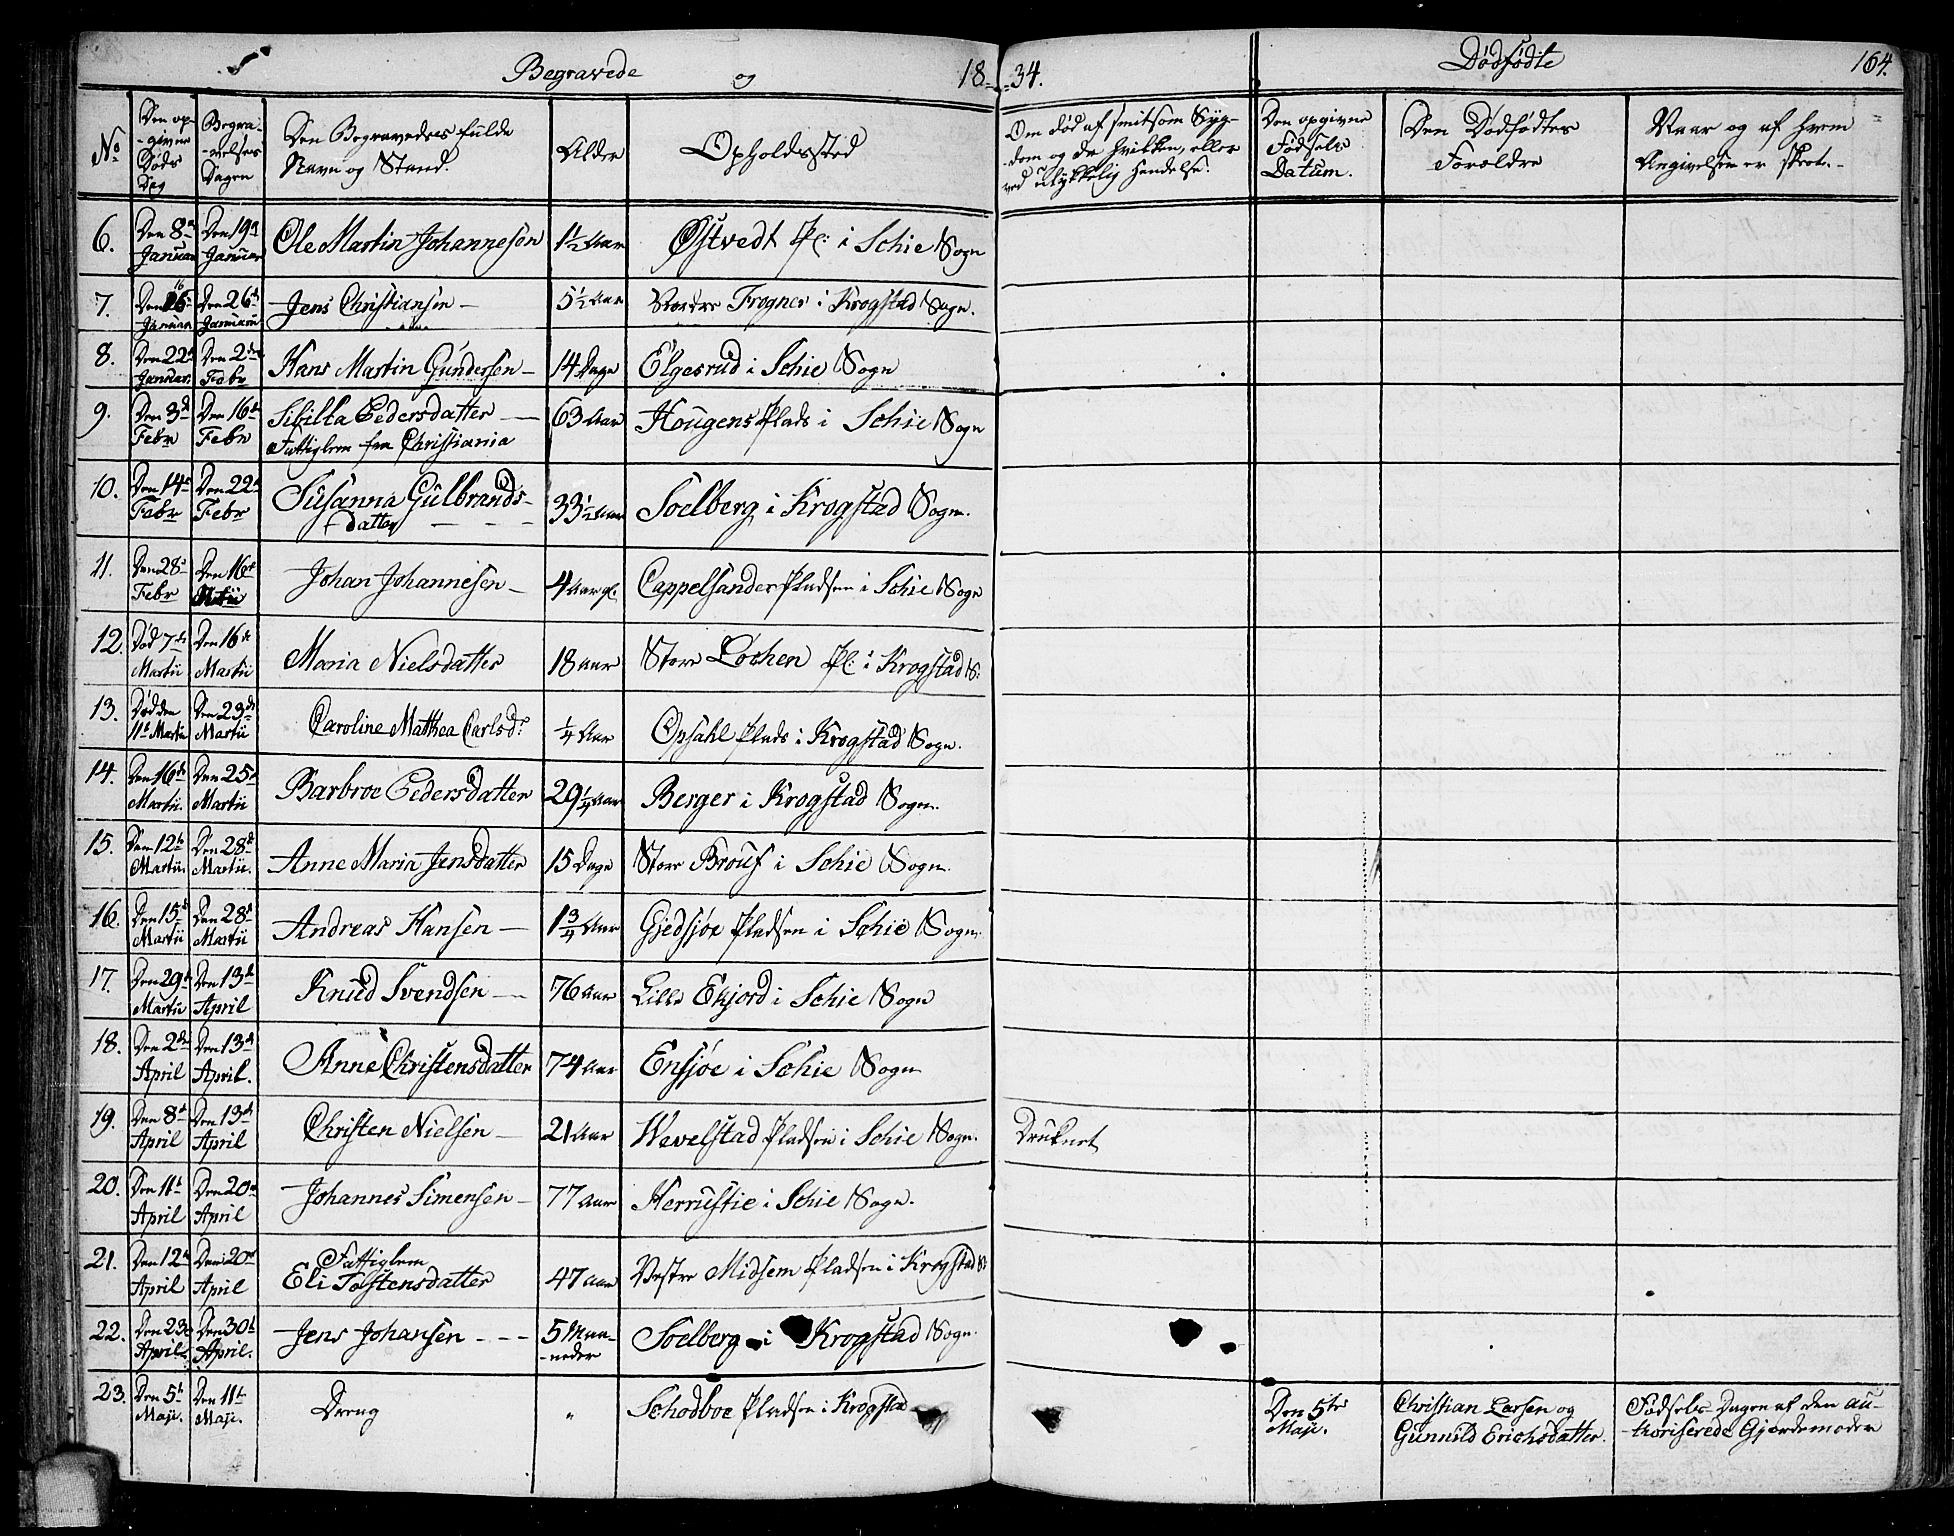 Begravede og 18 34. Dødfødte 164.
No
Den op-
-givne
Døds
Dag
Begra-
-velses
Dagen
Den Begravedes fulde
Navn og Stand.
Alder
Opholdssted
Om død af smitsom Syg-
-dom og da hvilken, eller
ved ulykkelig Hendelse.
Den opgivne
Fødsels
Datum.
Den Dødfødtes
Forældre
Naar og af hvem
Angivelsen er skeet.
6. Den 8de Januar Den 19de Januar Ole Martin Johannesen 1½ Aar Østvedt Pl: i Schie Sogn
7. Den 16 Januar Den 26de Januarii Jens Christiansen 5½ Aar Nordre Frogner i Krogstad Sogn.
8. Den 22de Januar. Den 2den Febr Hans Martin Gundersen 14 Dage Elgesrud i Schie Sogn
9. Den 3de Febr Den 16de Febr Sibilla Pedersdatter 63 Aar Hougens Plads i Schie Sogn
Fattiglem fra Christiania
10. Den 14de Febr Den 22de Febr Susanna Gulbrands-
datter 33½ Aar Soelberg i Krogstad Sogn.
11. Den 28de Febr Den 16de Martii Johan Johannesen 4 Aar gl. Cappelsander Pladsen i Schie Sogn
12. Død 7de Martii Den 16de Martii Maria Nielsdatter 18 Aar Store Lochen Pl: i Krogstad S:
13. Død den 11te Martii Den 23de Martii Caroline Mathea Carlsdr ¼ Aar Opsahl Plads i Krogstad Sogn.
14. Den 16de Martii. Den 25de Martii Barbroe Pedersdatter 29¼ Aar Berger i Krogstad Sogn.
15. Den 12te Martii. Den 28de Martii. Anne Maria Jensdatter 15 Dage Store Brouf i Schie Sogn.
16. Den 15de Martii Den 28de Martii Andreas Hansen 1¾ Aar Gjedsjøe Pladsen i Schie Sogn.
17. Den 29de Martii Den 13de April Knud Svendsen 76 Aar Lille Ekjord i Schie Sogn
18. Den 2den April Den 13de April. Anne Christensdatter 74 Aar Ensjøe i Schie Sogn
19. Den 8de April Den 13de April Christen Nielsen 21 Aar Wevelstad Pladsen i Schie Sogn. Druknet
20. Den 11te April Den 20de April Johannes Simensen 77 Aar Herrustie i Schie Sogn.
21. Den 12te April Den 20de April Fattiglem
Eli Tostensdatter 47 Aar Vestre Midsem Pladsen i Krogstad S:
22. Den 23de April Den 30te April. Jens Johansen 5 Maa-
-neder Soelberg i Krogstad Sogn.
23. Den 5te Maji. Den 11te Maji. Dreng " Schodboe Pladsen i Krogstad Den 5te
Maji. Christian Larsen og
Gunnild Erichsdatter. Fødsels Dagen af den au-
-thoriserede Gjordemoder